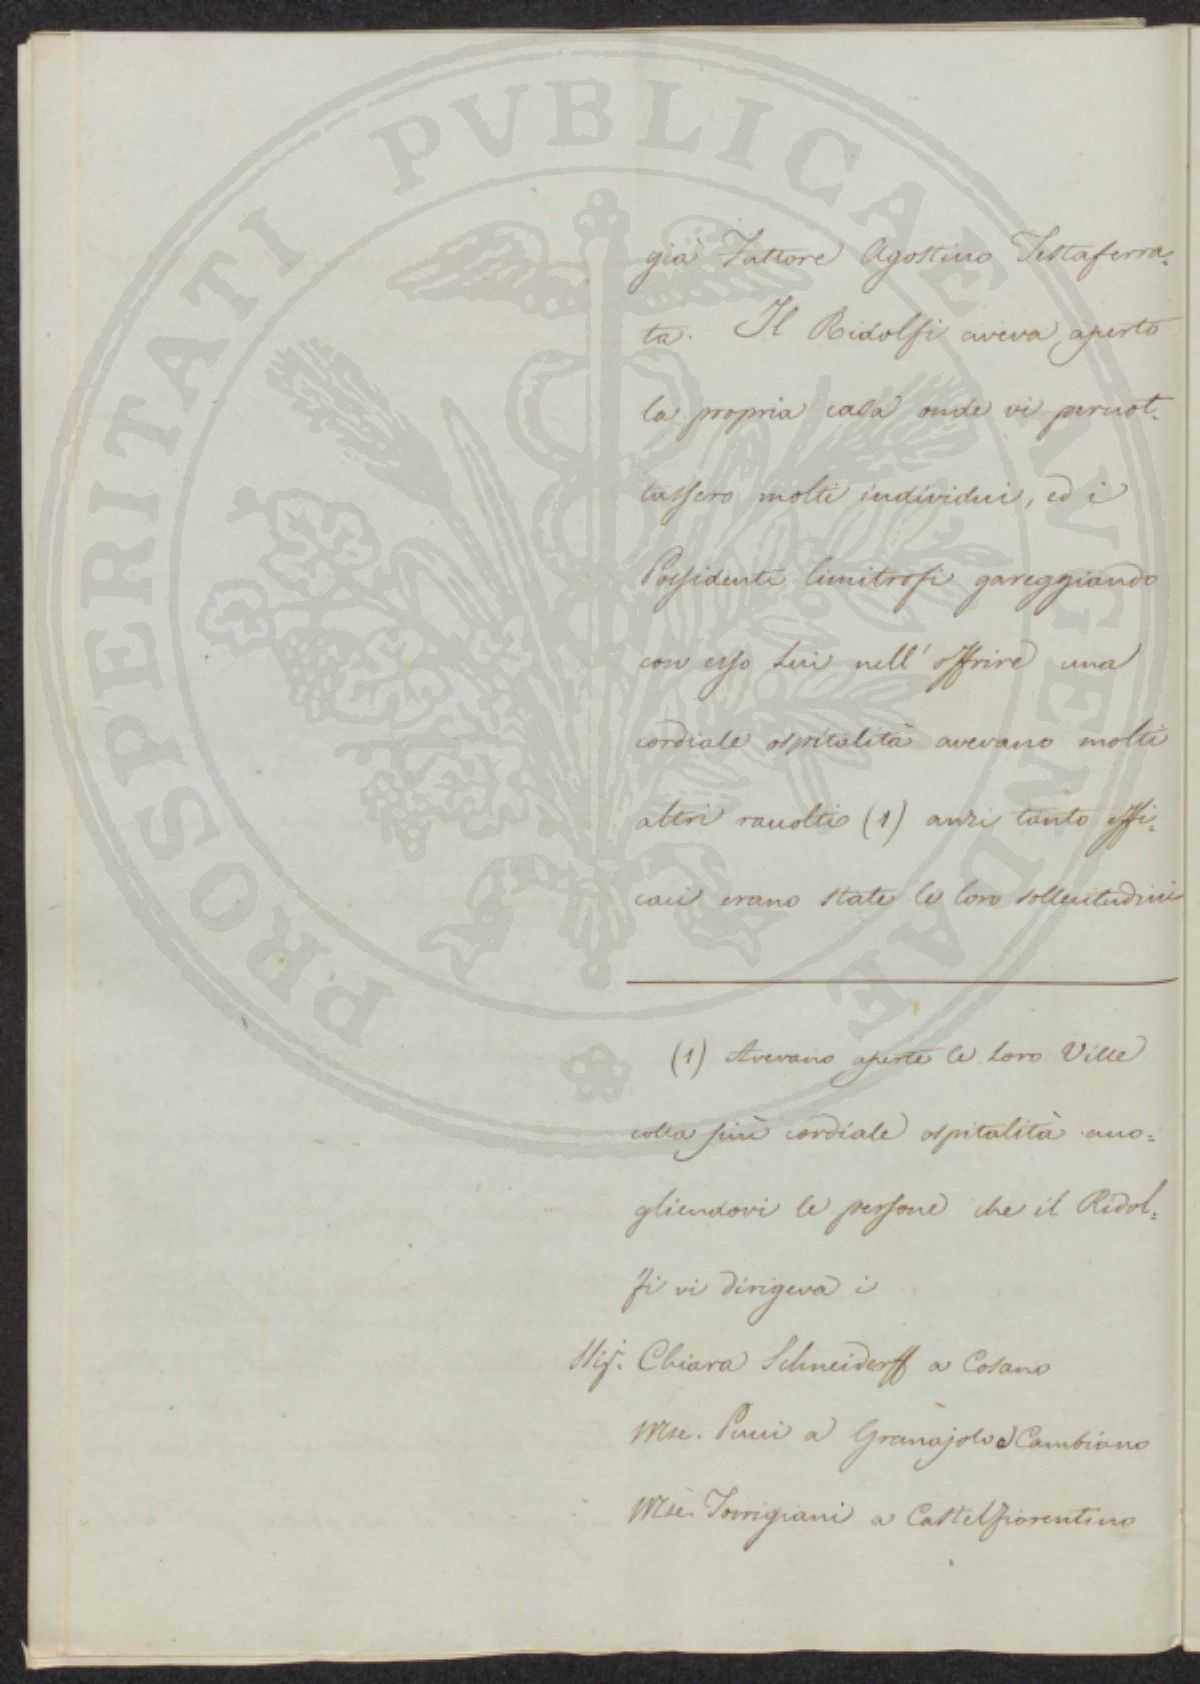 PROSPERITATI PVBLICAE AVGENDAE
già Fattore Agostino Testaferra=
ta. Il Ridolfi aveva aperto
la propria casa onde vi pernot=
tassero molti individui, ed i
Possidenti limitrofi gareggiando
con esso Lui nell'offrire una
cordiale ospitalità avevano molti
altri raccolti (1) anzi tanto effi=
caci erano state le loro sollecitudini
(1) Avevano aperte le Loro Ville
colla più cordiale ospitalità acco=
gliendovi le persone che il Ridol=
fi vi dirigeva i
Sig. Chiara Schneiderff a Cosano
Mse. Pucci a Granajolo e Cambiano
Mse. Torrigiani a Castelfiorentino